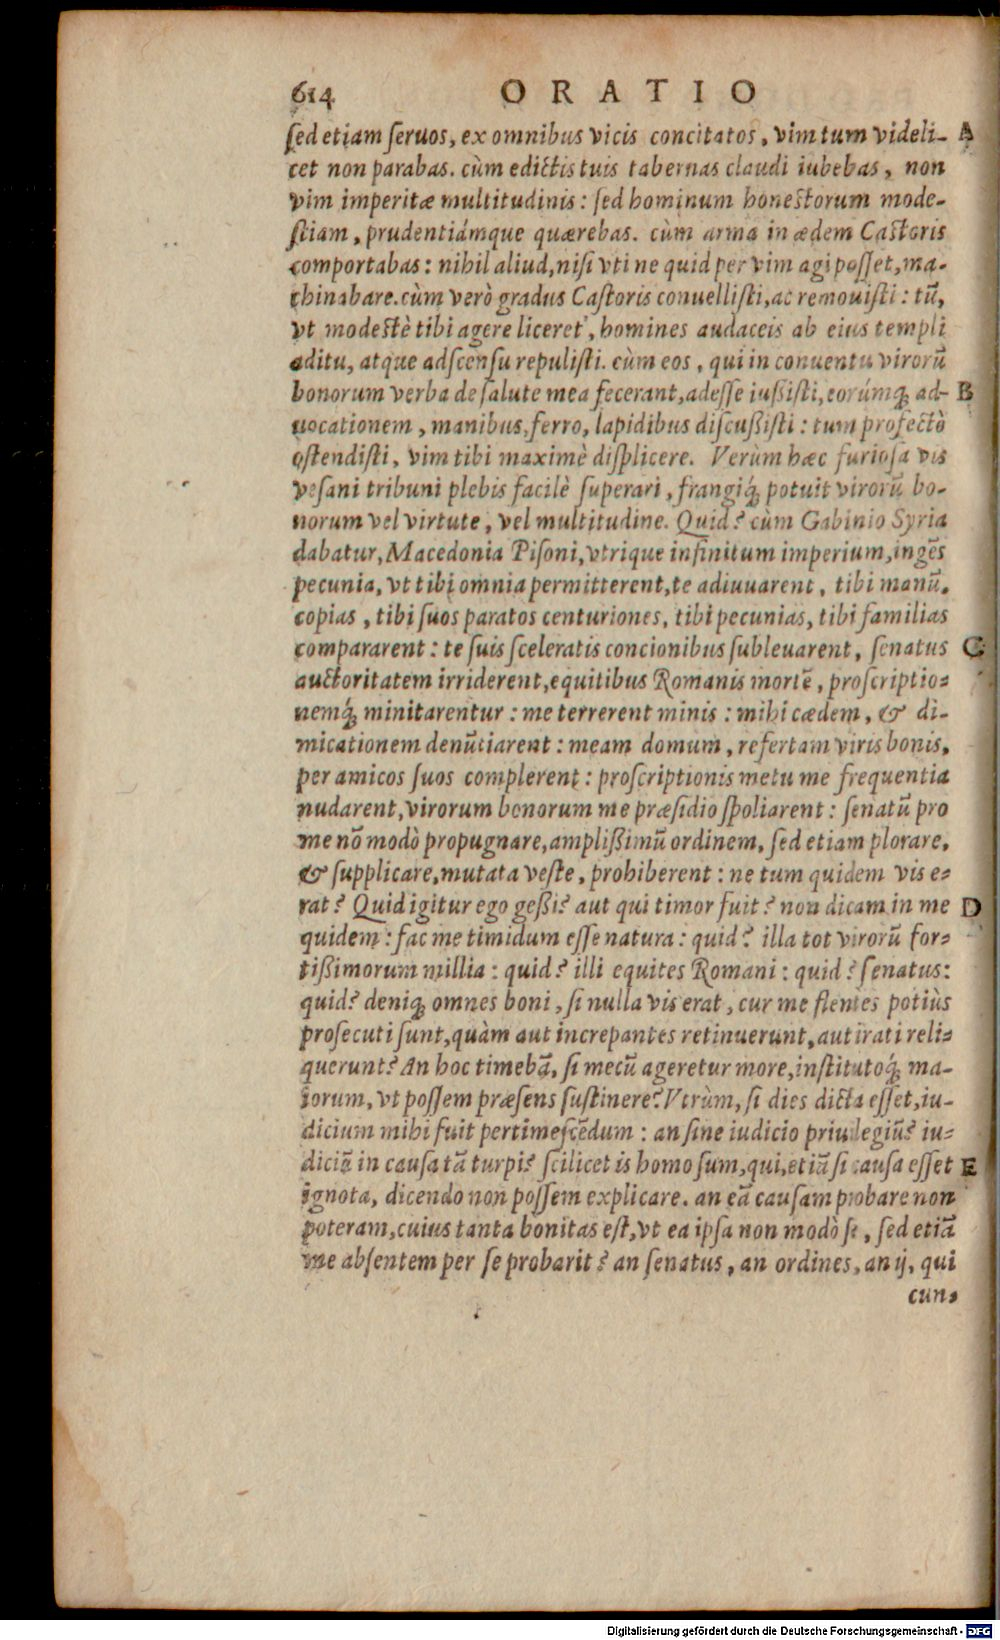 614 ORATIO
ſed etiam ſeruos, ex omnibus vicis concitatos, vim tum videli- A
cet non parabas. cùm edictis tuis tabernas claudi iubebas, non
vim imperitæ multitudinis: ſed hominum honeſtorum mode-
ſtiam, prudentiámque quærebas. cùm arma in ædem Caſtoris
comportabas: nihil aliud, niſi vti ne quid per vim agi poſſet, ma-
chinabare. cùm verò gradus Caſtoris conuelliſti, ac remouiſti: tū,
vt modeſtè tibi agere liceret, homines audaceis ab eius templi
aditu, atque adſcenſu repuliſti. cùm eos, qui in conuentu virorū
bonorum verba de ſalute mea fecerant, adeſſe iußiſti, eorúmq́; ad- B
uocationem, manibus, ferro, lapidibus diſcußiſti: tum profectò
oſtendiſti, vim tibi maximè diſplicere. Verùm hæc furioſa vis
veſani tribuni plebis facilè ſuperari, frangiq́; potuit virorū bo-
norum vel virtute, vel multitudine. Quid? cùm Gabinio Syria
dabatur, Macedonia Piſoni, vtrique infinitum imperium, ingēs
pecunia, vt tibi omnia permitterent, te adiuuarent, tibi manū,
copias, tibi ſuos paratos centuriones, tibi pecunias, tibi familias
compararent: te ſuis ſceleratis concionibus ſubleuarent, ſenatus C
auctoritatem irriderent, equitibus Romanis mortē, proſcriptio-
nemq́; minitarentur: me terrerent minis: mihi cædem, & di-
micationem denūtiarent: meam domum, refertam viris bonis,
per amicos ſuos complerent: proſcriptionis metu me frequentia
nudarent, virorum bonorum me præſidio ſpoliarent: ſenatū pro
me nō modò propugnare, amplißimū ordinem, ſed etiam plorare,
& ſupplicare, mutata veſte, prohiberent: ne tum quidem vis e-
rat? Quid igitur ego geßi? aut qui timor fuit? non dicam in me D
quidem: fac me timidum eſſe natura: quid? illa tot virorū for-
tißimorum millia: quid? illi equites Romani: quid? ſenatus:
quid? deniq; omnes boni, ſi nulla vis erat, cur me flentes potiùs
proſecuti ſunt, quàm aut increpantes retinuerunt, aut irati reli-
querunt? An hoc timebā, ſi mecū ageretur more, inſtitutoq́; ma-
iorum, vt poſſem præſens ſuſtinere? Vtrùm, ſi dies dicta eſſet, iu-
dicium mihi fuit pertimeſcēdum: an ſine iudicio priuilegiū? iu-
diciū in cauſa tā turpi? ſcilicet is homo ſum, qui, etiā ſi cauſa eſſet E
ignota, dicendo non poſſem explicare. an eā cauſam probare non
poteram, cuius tanta bonitas eſt, vt ea ipſa non modò ſe, ſed etiā
me abſentem per ſe probarit? an ſenatus, an ordines, an ij, qui
cun-
Digitalisierung gefördert durch die Deutsche Forschungsgemeinschaft - DFG